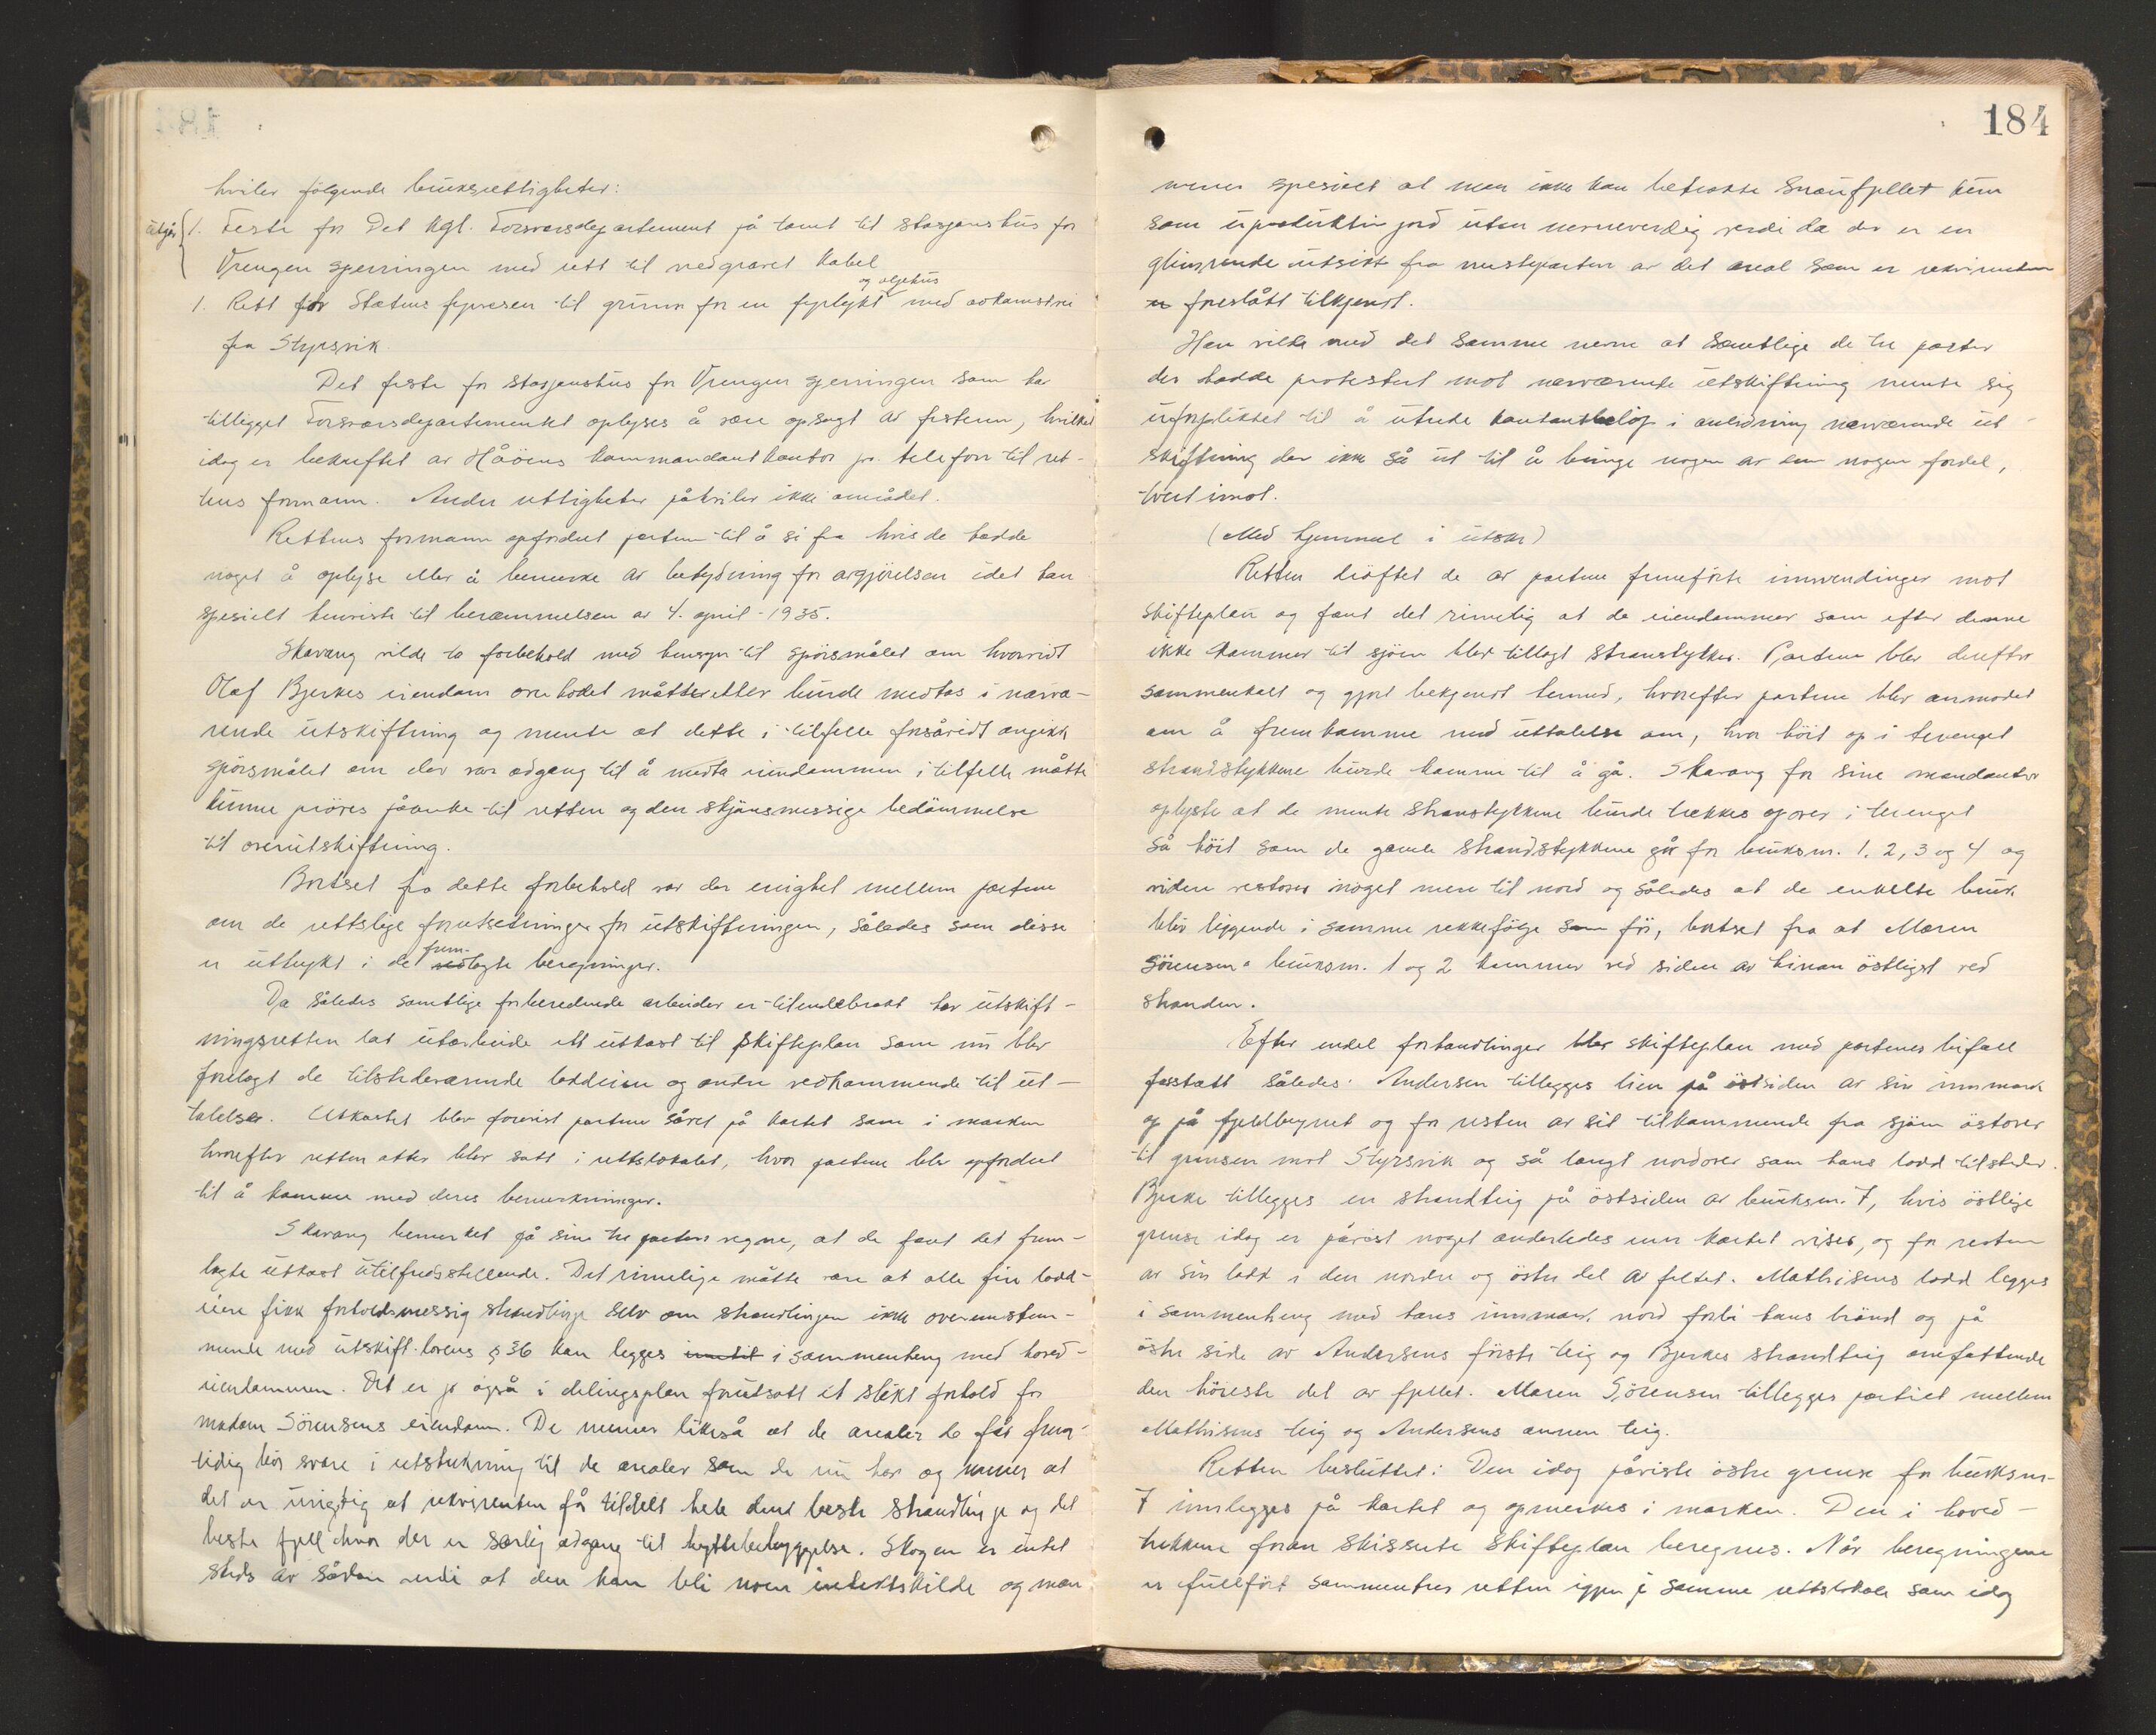 hviler følgende bruksrettigheter:
utgår { 1. Feste for Det kgl. Forsvarsdepartement på tomt til stasjonshus for
Vrengen sperringen med rett til nedgravet kabel
1. Rett for Statens fyrvesen til grunn for en fyrlykt og oljehus med adkomstvei
fra Styrsvik.
Det feste for stasjonshus for Vrengen sperringen som har
tilligget Forsvarsdepartementet oplyses å være opsagt av festeren, hvilket
idag er bekreftet av Håöens kommandantkontor pr. telefon til ret-
tens formann. Andre rettigheter påhviler ikke området.
Rettens formann opfordret partene til å si fra hvis de hadde
noget å oplyse eller å bemerke av betydning for avgjörelsen idet han
spesielt henviste til berammelsen av 4. april - 1935.
Skavang vilde ta forbehold med hensyn til spörsmålet om hvorvidt
Olaf Bjerkes eiendom overhodet måtte eller burde medtas i nærvæ-
rende utskiftning og mente at dette i tilfelle forsåvidt angikk
spörsmålet om der var adgang til å medta eiendommen i tilfelle måtte
kunne pröves påanke til retten og den skjönsmessige bedömmelse
til overutskiftning.
Bortset fra dette forbehold var der enighet mellem partene
om de rettslige forutsetninger for utskiftningen, således som disse
er uttrykt i de fremlagte beregninger.
Da således samtlige forberedende arbeider er tilendebrakt har utskift-
ningsretten lat utarbeide ett utkast til skifteplan som nu blev
forelagt de tilstedeværende loddeiere og andre vedkommende til ut-
talelse. Utkastet blev forevist partene såvel på kartet som i marken
hvorefter retten atter blev satt i rettslokalet, hvor partene blev opfordret
til å komme med deres bemerkninger.
Skavang bemerket på sine tre parters vegne, at de fant det frem-
lagte utkast utilfredsstillende. Det rimelige måtte være at alle fire lodd-
eiere fikk forholdsmessig strandlinje selv om strandlinjen ikke overenstem-
mende med utskift.lovens § 36 kan legges i sammenheng med hoved-
eiendommen. Det er jo også i delingsplan forutsatt et slikt forhold for
madam Sörensens eiendom. De mener likeså at de arealer de får frem-
tidig bör svare i utstrekning til de arealer som de nu har og mener at
det er uriktig at rekvirenten få tildelt hele den beste strandlinje og det
beste fjell hvor der er særlig adgang til hyttebebyggelse. Skogen er intet
steds av sådan verdi at den kan bli noen inntektskilde og man

184
mener spesielt at man ikke kan betrakte Snaufjellet kun
som uproduktiv jord uten nevneverdig verdi da der er en
glimrende utsikt fra mesteparten av det areal som er rekvirenten
foreslått tilkjent.
Han vilde med det samme nevne at samtlige de tre parter
der hadde protestert mot nærværende utskiftning mente sig
uforpliktet til å utrede kontantbelöp i anledning nærværende ut-
skiftning der ikke så ut til å bringe nogen av dem nogen fordel,
tvert imot.
(Med hjemmel i utskr)
Retten dröftet de av partene fremförte innvendinger mot
skifteplan og fant det rimelig at de eiendommer som efter denne
ikke kommer til sjöen blev tillagt strandstykker. Partene blev derefter
sammenkalt og gjort bekjent hermed, hvorefter partene blev anmodet
om å fremkomme med uttalelse om, hvor höit op i terrenget
strandstykkene burde komme til å gå. Skavang for sine mandanter
oplyste at de mente strandstykkene burde trekkes opover i terrenget
så höit som de gamle strandstykkene går for bruksnr. 1, 2, 3 og 4 og
videre vestover noget mere til nord og således at de enkelte bruk
blev liggende i samme rekkefölge som för, bortset fra at Maren
Sörensens bruksnr. 1 og 2 kommer ved siden av hinan östligst ved
stranden.
Efter endel forhandlinger blev skifteplan med partenes bifall
fasstatt således: Andersen tillegges lien på östsiden av sin innmark
op på fjellbrynet og for resten av sit tilkommende fra sjöen östover
til grensen mot Styrsvik og så langt nordover som hans lodd tilsteder.
Bjerke tillegges en strandteig på östsiden av bruksnr. 7, hvis östlige
grense idag er påvist noget anderledes enn kartet viser, og for resten
av sin lodd i den nordre og östre del av feltet. Mathisens lodd legges
i sammenheng med hans innmark nord forbi hans brönd og på
östre side av Andersens förste teig og Bjerkes strandteig omfattende
den höieste del av fjellet. Maren Sörensen tillegges partiet mellem
Mathisens teig og Andersens annen teig.
Retten besluttet: Den idag påviste östre grense for bruksnr.
7 innlegges på kartet og opmerkes i marken. Den i hoved-
trekkene foran skisserte skifteplan beregnes. Når beregningene
er fullfört sammentres retten igjen i samme rettslokale som idag